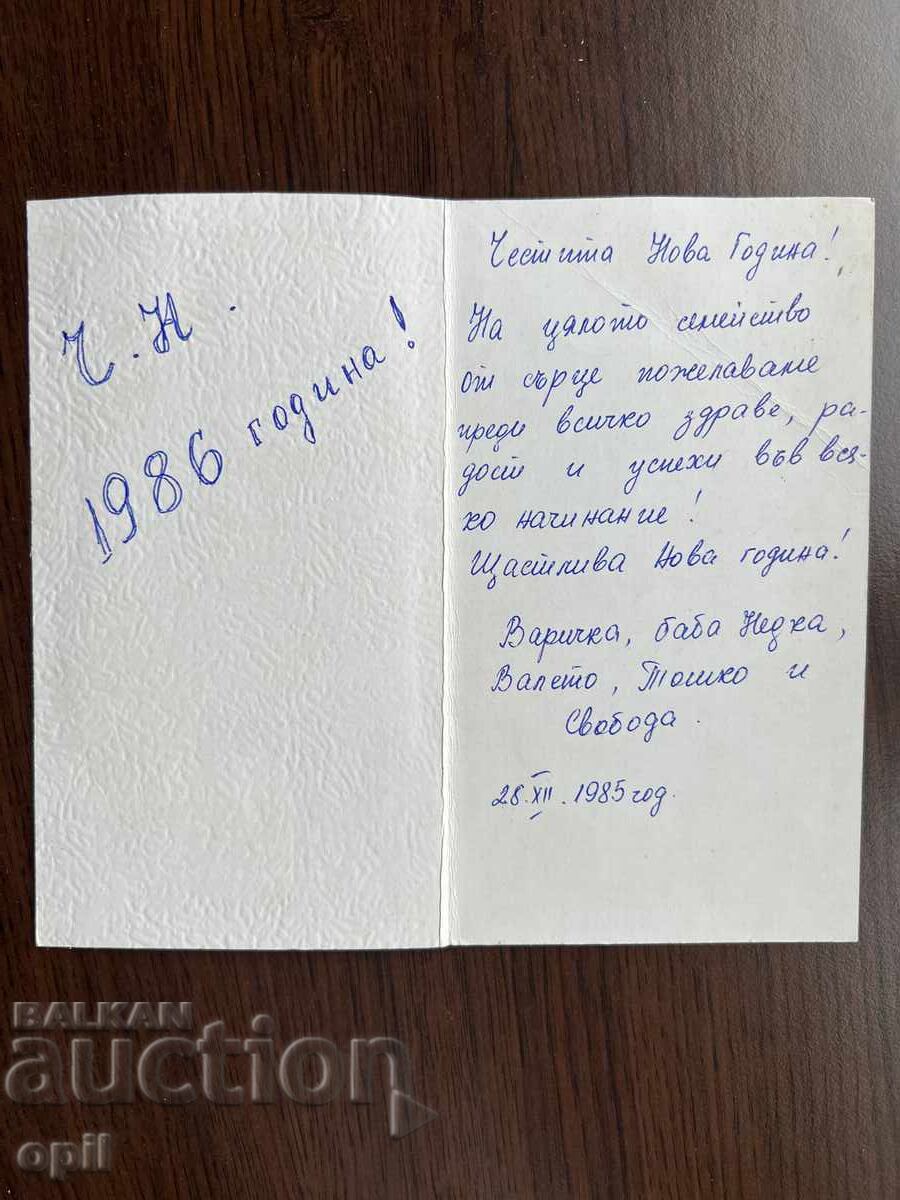 Ч. Н.
1986 година!
Честита Нова Година!
На цялото семейство
от сърце пожелаваме
преди всичко здраве, ра-
дост и успехи във вся-
ко начинание!
Щастлива Нова година!
Варичка, баба Недка,
Валето, Тошко и
Свобода.
28.XII.1985 год.
BALKAN
auction
opil